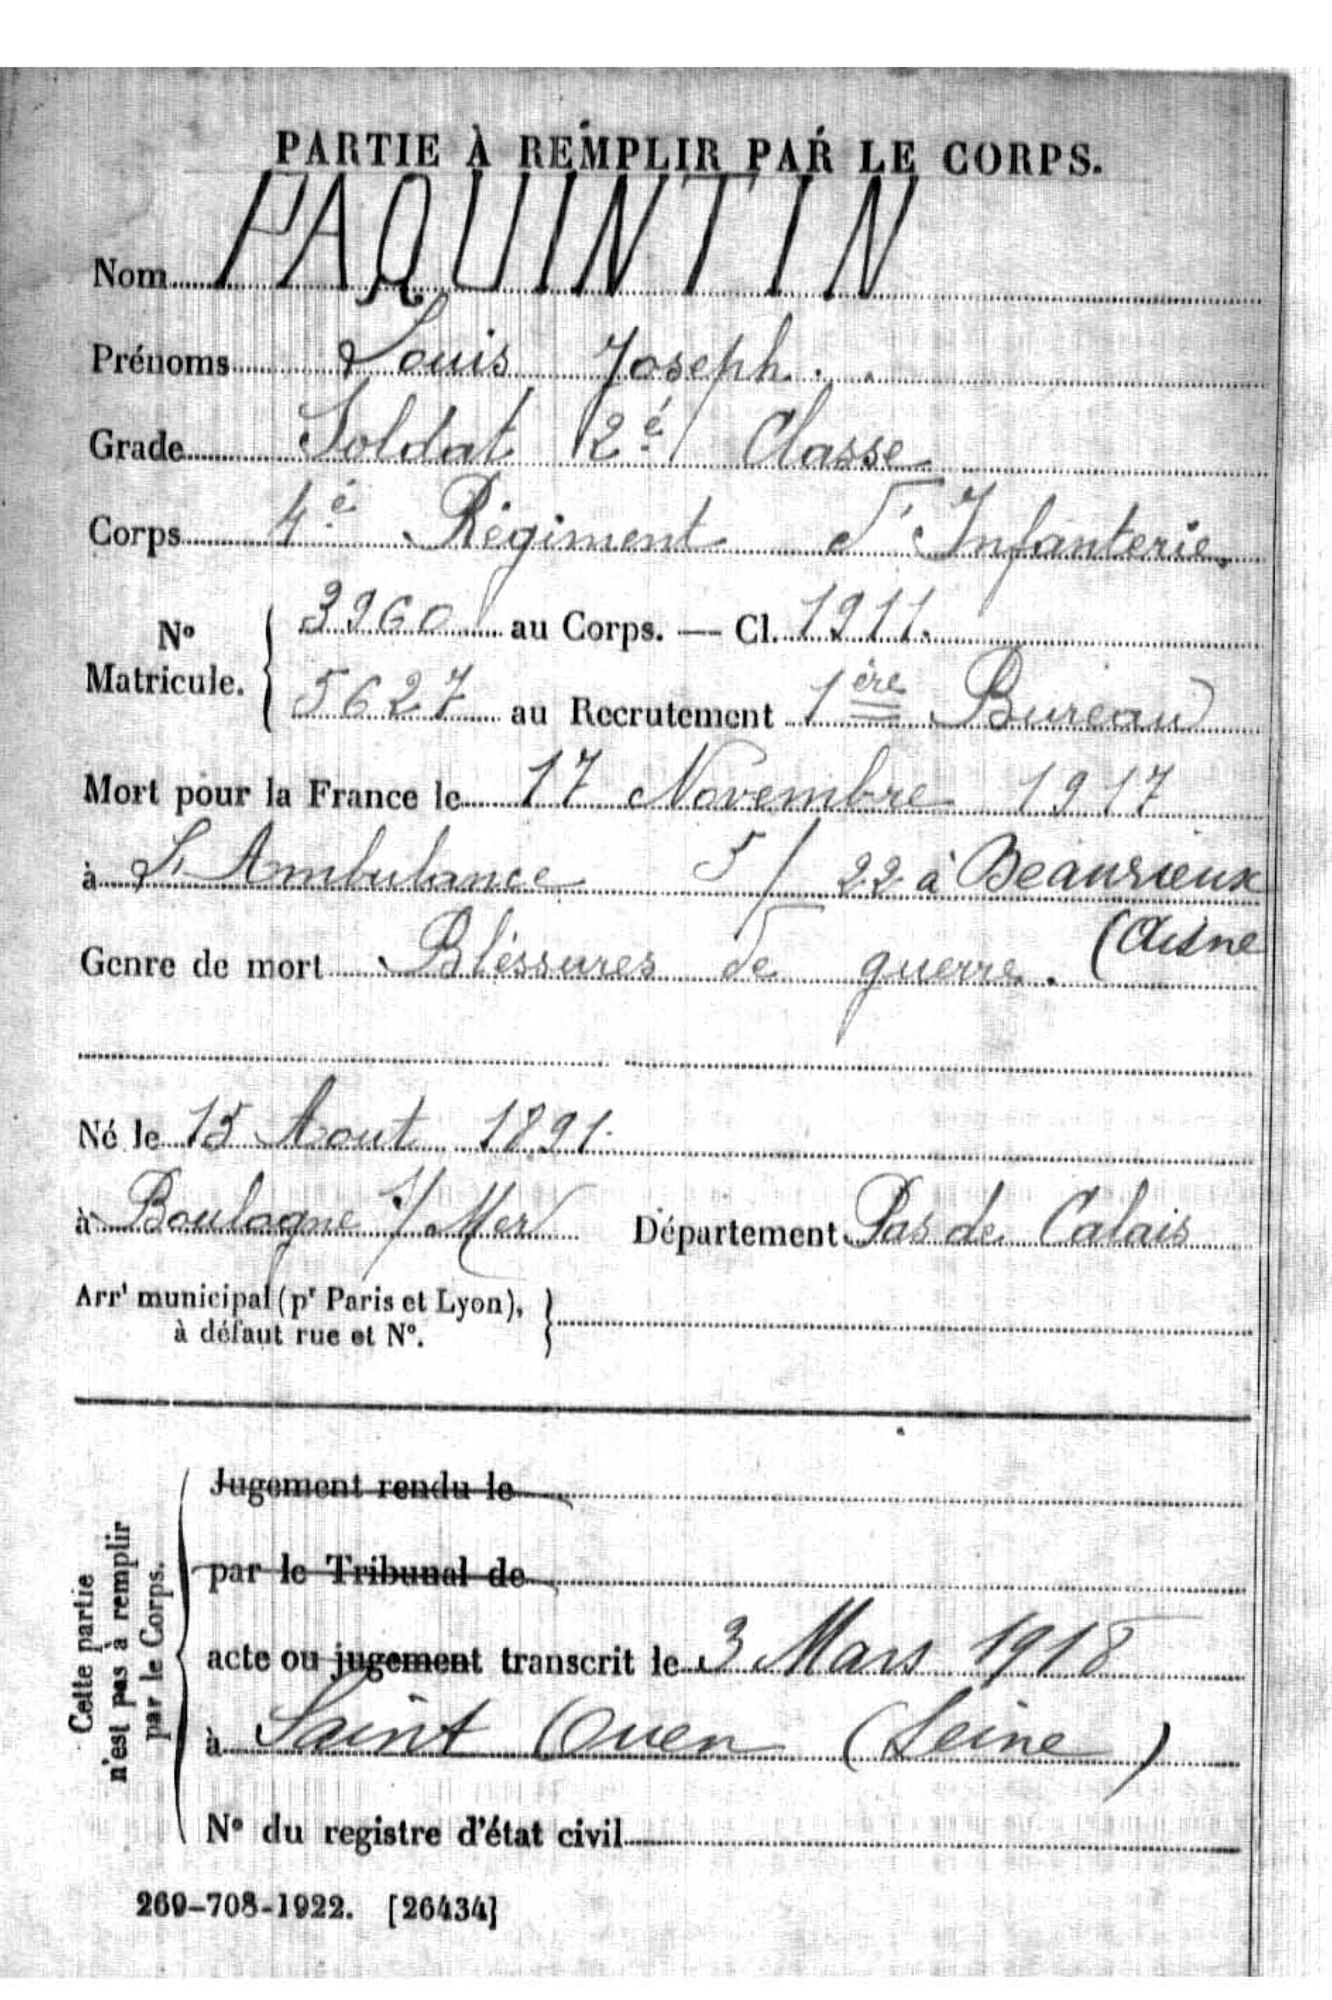 PARTIE À REMPLIR PAR LE CORPS.
Nom PAQUINTIN
Prénoms Louis Joseph.
Grade Soldat 2è Classe
Corps 4è Régiment d'Infanterie.
N° Matricule. { 3960 au Corps. — Cl. 1911.
5627 au Recrutement 1ère Bureau
Mort pour la France le 17 Novembre 1917
à L'Ambulance 5/22 à Beaurieux
(Aisne
Genre de mort Bléssures de guerre.
Né le 15 Aout 1891.
à Boulogne s/Mer Département Pas de Calais
Arrt municipal (pr Paris et Lyon),
à défaut rue et N°. }
Cette partie
n'est pas à remplir
par le Corps.
Jugement rendu le
par le Tribunal de
acte ou jugement transcrit le 3 Mars 1918
à Saint Ouen (Seine)
N° du registre d'état civil
269-708-1922. [26434]